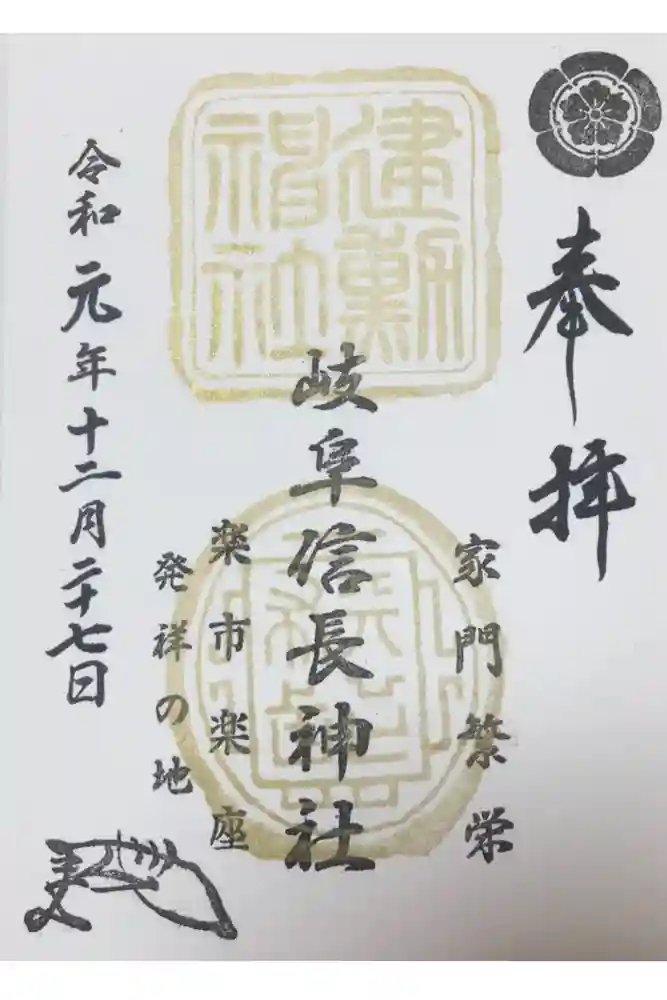 奉拝
家門繁栄
建勲
神社
岐阜信長神社
楽市楽座
発祥の地
令和元年十二月二十七日